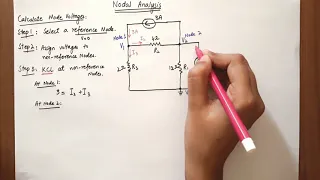 Nodal Analysis
Calculate Node Voltages:
Step 1: Select a reference Node.
V=0
Step 2: Assign voltages to
non-reference Nodes.
Step 3: KCL at non-reference
nodes.
At Node 1:
3 = I₂ + I₃
At Node 2:
3A
3A
4Ω
Node 1
Node 2
V₁
V₂
I₂
R₂
I₃
2Ω
R₃
12Ω